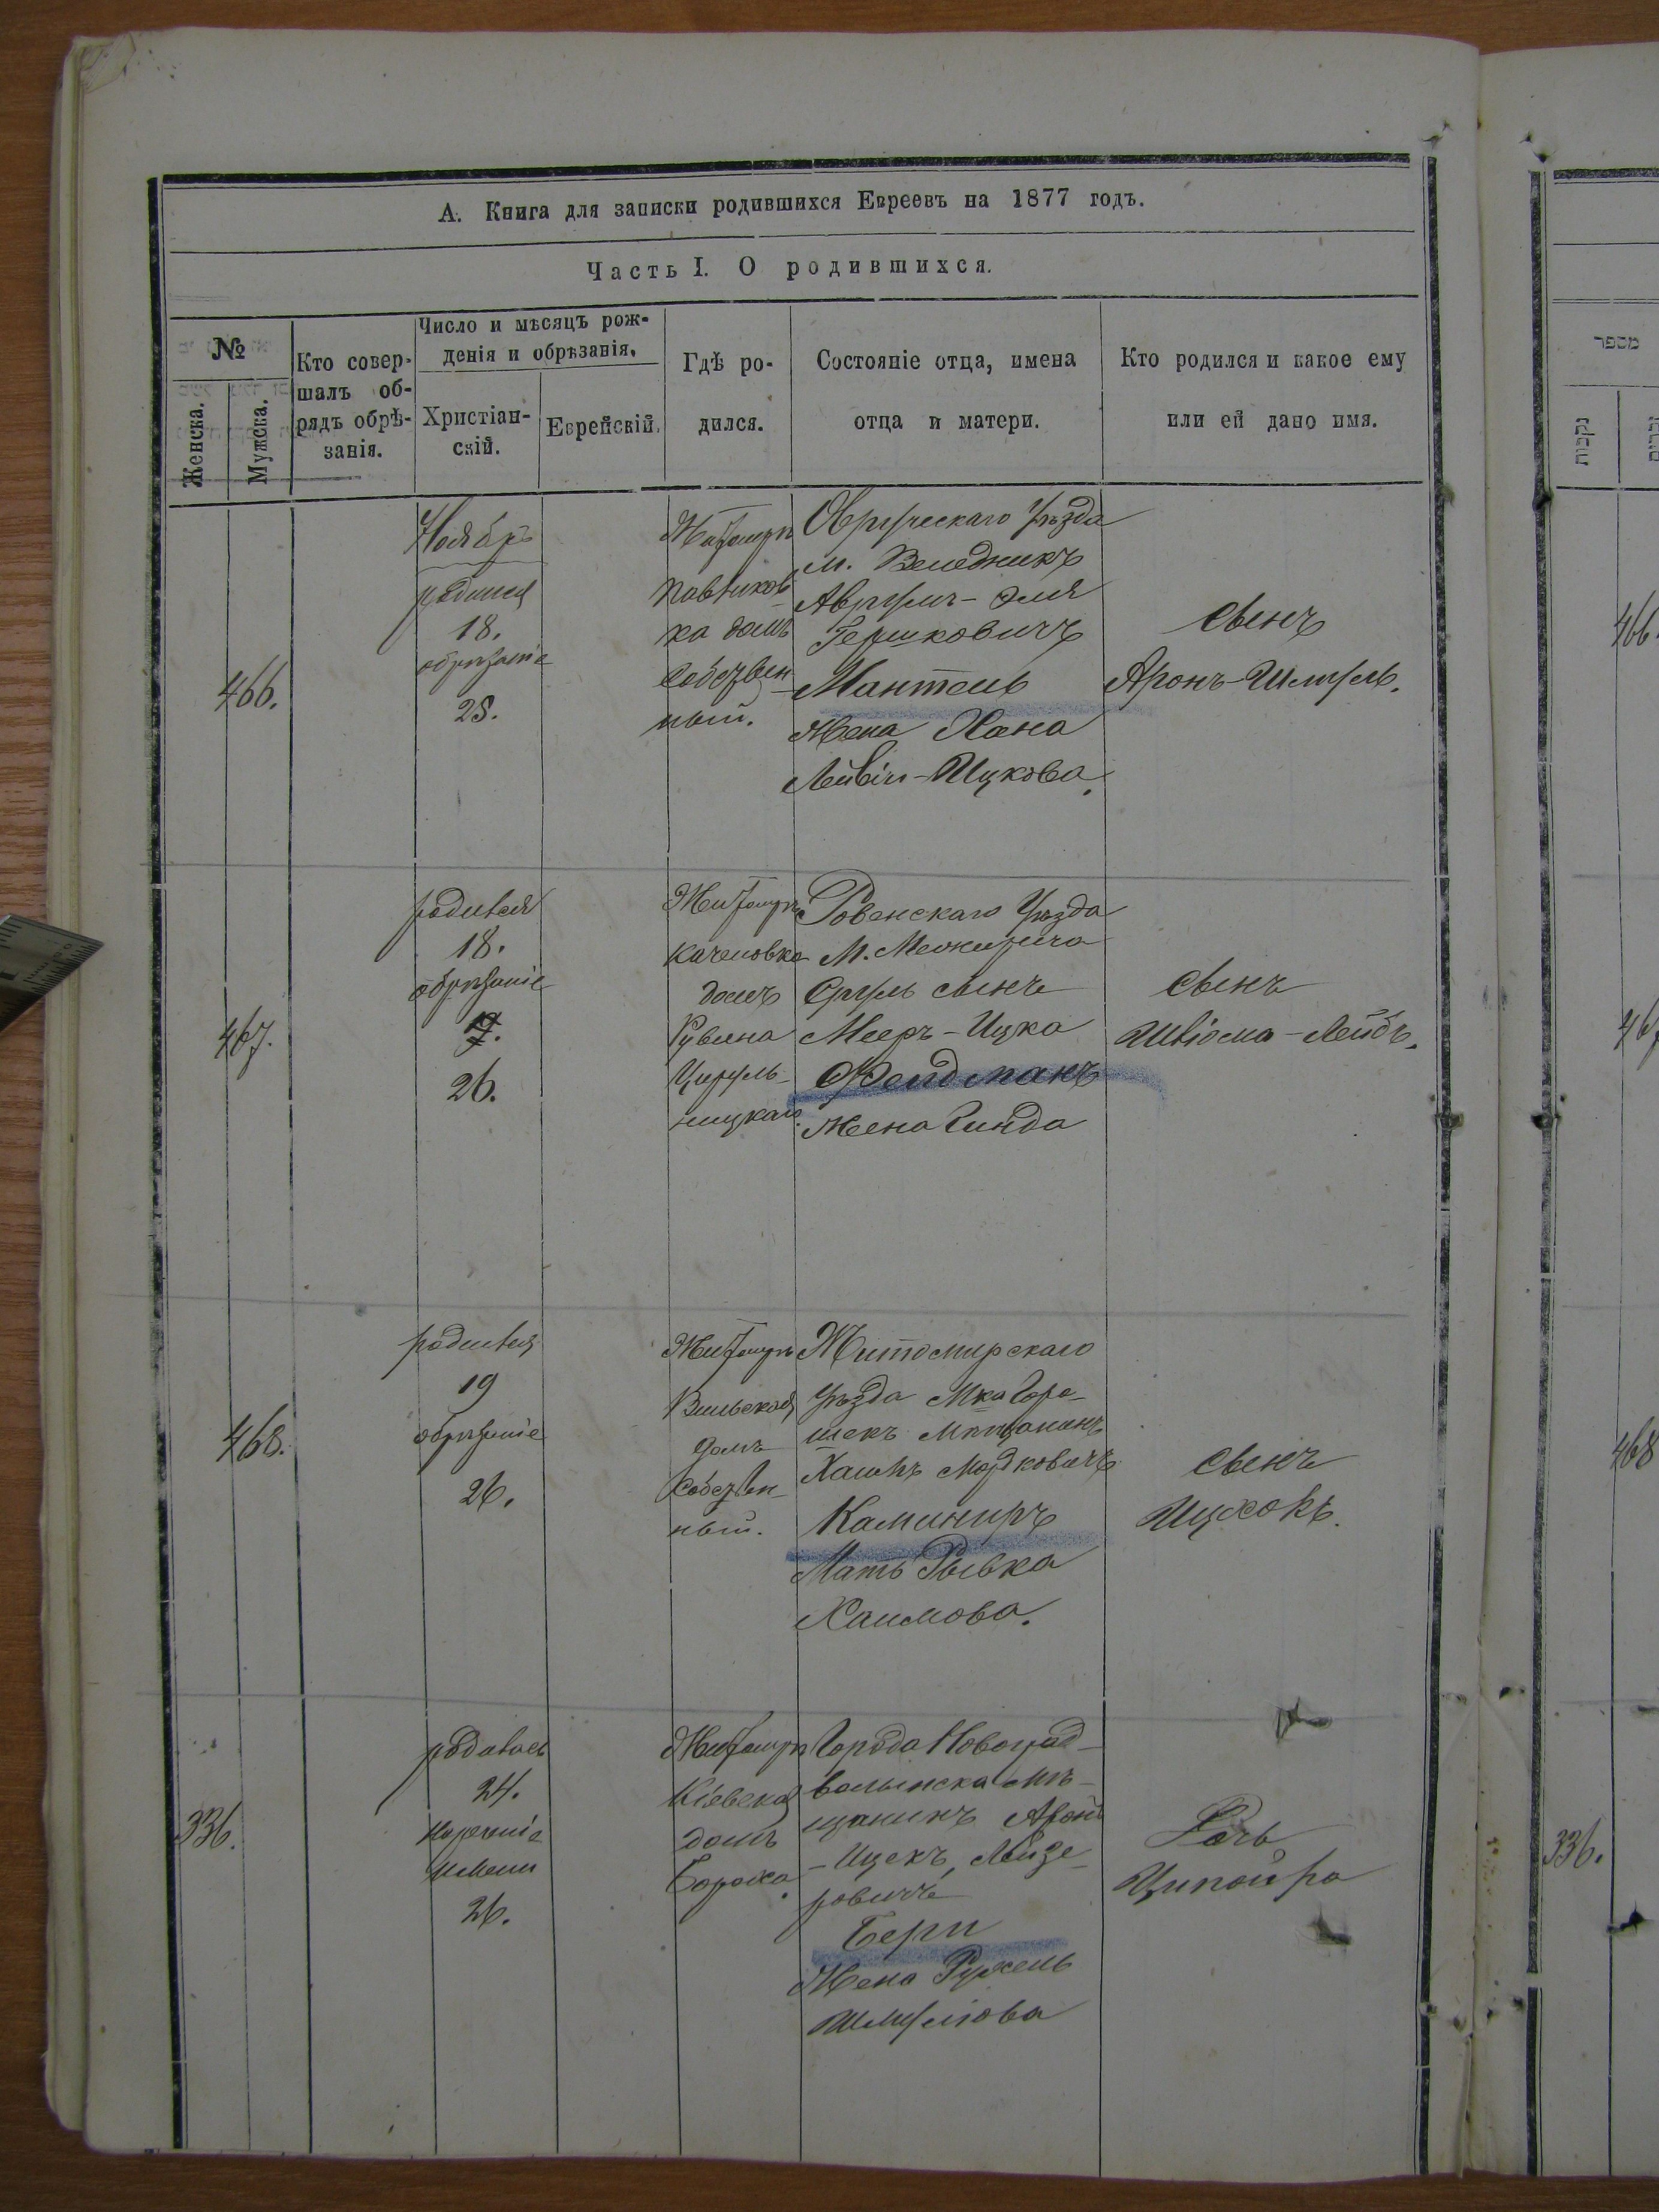 А. Книга для записки родившихся Евреевъ на 1877 годъ.
Часть I. О родившихся.
№
Женска.
Мужска.
Кто совер-
шалъ об-
рядъ обрѣ-
занія.
Число и мѣсяцъ рож-
денія и обрѣзанія.
Христіан-
скій.
Еврейскій.
Гдѣ ро-
дился.
Состояніе отца, имена
отца и матери.
Кто родился и какое ему
или ей дано имя.
466.
Ноябрь
родился
18.
обрѣзаніе
25.
Житомиръ
ка домъ
собствен-
ный.
Овручскаго Уѣзда
м. Веледникъ
Аврумъ-Эля
Гершковичъ
Мантель
Жена Хана
Лейбіи-Ицкова.
Сынъ
Аронъ-Шмуль.
467.
родился
18.
обрѣзаніе
26.
Житомиръ
Качановка
домъ
Рувина
Цируль-
ницкаго.
Ровенскаго Уѣзда
М. Межирича
Сруль сынъ
Мееръ-Ицка
Фелдманъ
Жена Гинда
Сынъ
Шліома-Лейбъ.
468.
родился
19
обрѣзаніе
26.
Житомиръ
Вильская
домъ
собствен-
ный.
Житомирскаго
Уѣзда Мка Горо-
шекъ Мѣщанинъ
Хаимъ Мордковичъ
Каминиръ
Мать Рывка
Хаимова.
Сынъ
Ицхокъ.
336.
родилась
24.
нареченіе
имени
26.
Житомиръ
Кіевская
домъ
Бороха.
Города Новоград-
волынска Мѣ-
щанинъ Аронъ
-Ицекъ Лейзе-
ровичъ
Берш
Жена Рухель
Шмулюва
Дочь
Ципойра
מספר
נקבות
זכרים
466.
467
468
336.